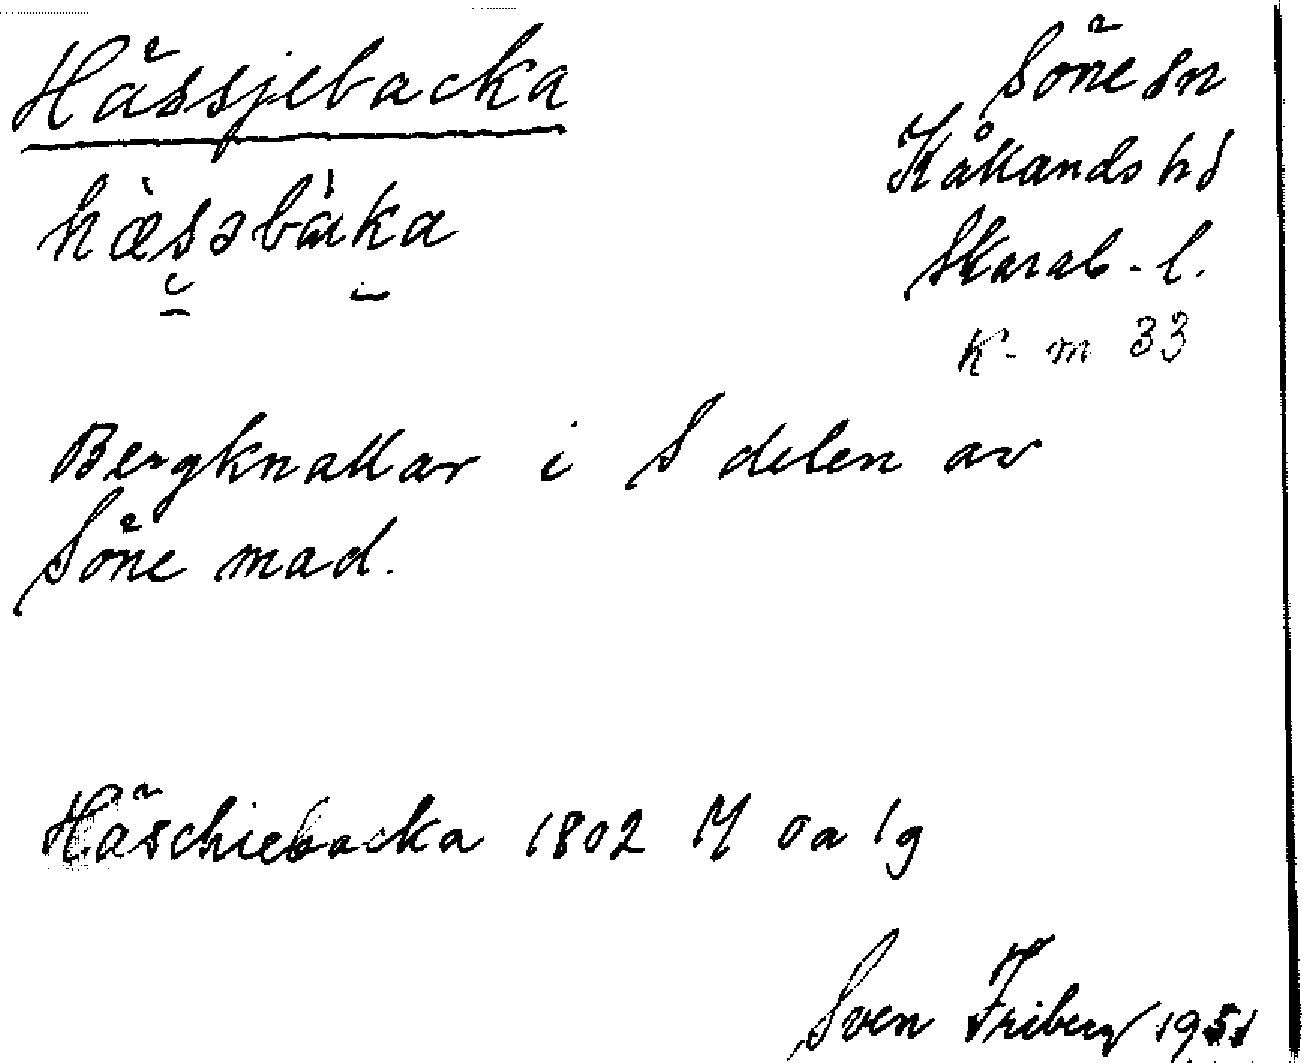 Hässjebacka
Söne sn
Kållands hd
Skarab. l.
K-m 33
Bergknallar i S delen av
Söne mad.
Häschiebacka 1802 M oa 1g
Sven Friberg 1951